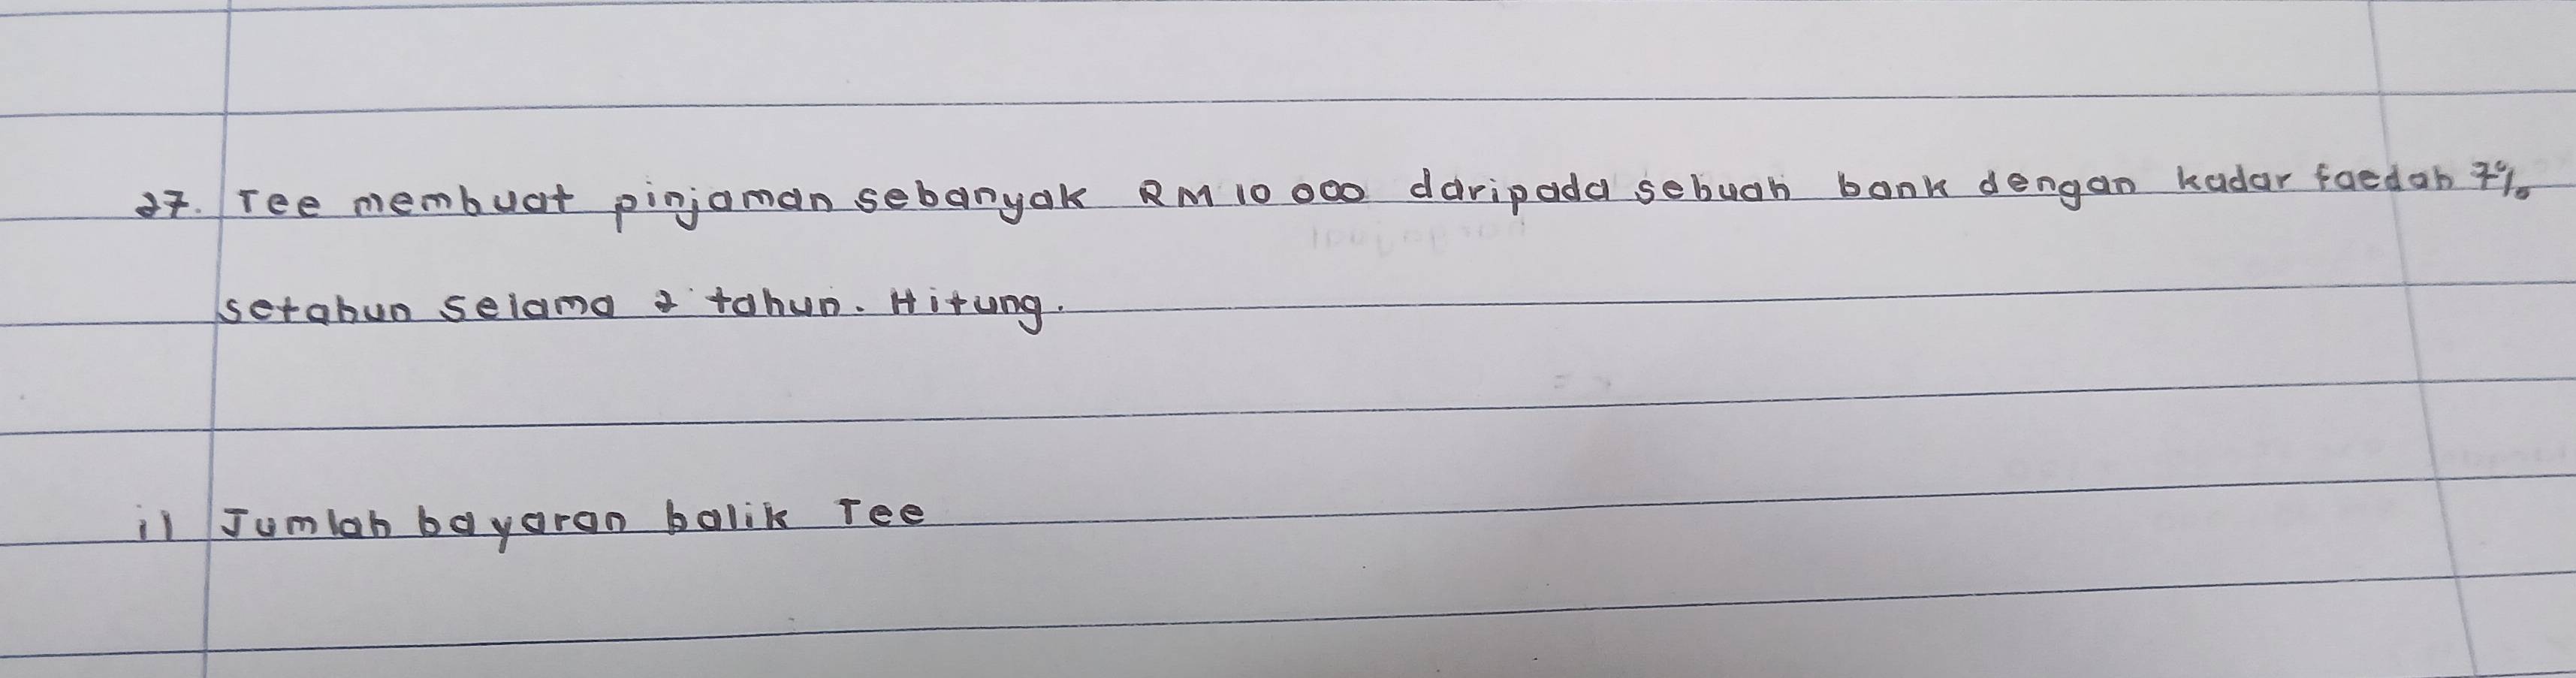 27. Tee membuat pinjaman sebanyak RM 10 000 daripada sebuah bank dengan kadar faedah 7%
setahun selama 2 tahun. Hitung.
i) Jumlah bayaran balik Tee